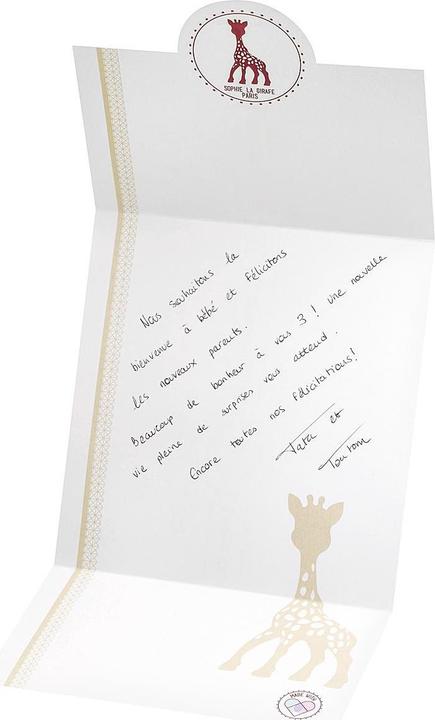 SOPHIE LA GIRAFE
PARIS
Nous souhaitons la
bienvenue à bébé et félicitons
les nouveaux parents.
Beaucoup de bonheur à vous 3 ! une nouvelle
vie pleine de surprises vous attend.
Encore toutes nos félicitations !
Tata et
Tonton
MADE WITH